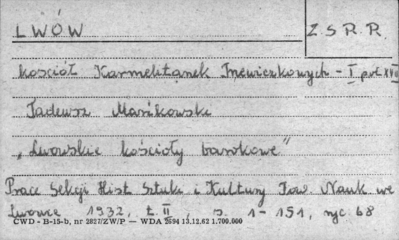 LWÓW
Z.S.R.R.
kościół Karmelitanek Trzewiczkowych - I poł. XVII
Tadeusz Mańkowski
„Lwowskie kościoły barokowe"
Prace Sekcji Hist. Sztuki i Kultury Tow. Nauk. we
Lwowie 1932, t. II, s. 1-151, ryc. 68
CWD - B-15-b, nr 2827/ZW/P — WDA 2694 13.12.62 1.700.000